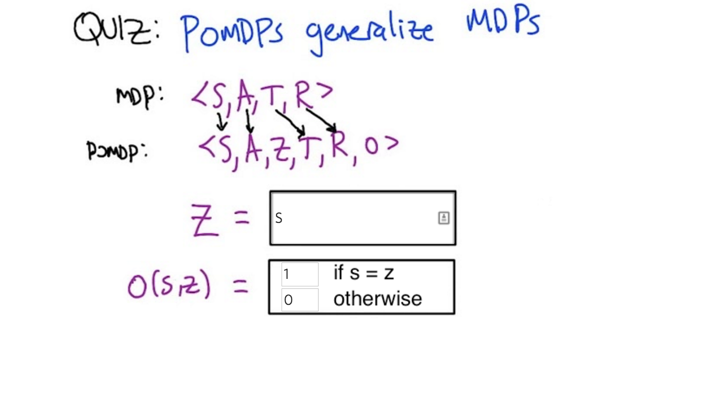 QUIZ: POMDPs generalize MDPs
MDP: <S, A, T, R>
POMDP: <S, A, Z, T, R, O>
Z = S
O(s,z) = 1 if s = z
0 otherwise